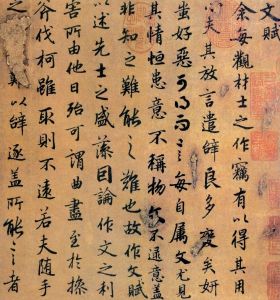 文賦
余每觀材士之作竊有以得其用
心夫其放言遣辭良多變矣妍
蚩好惡可得而言每自属文尤見
其情恒患意不稱物文不逮意盖
非知之難能之難也故作文賦
以述先士之盛藻因論作文之利
害所由他日殆可謂曲盡至於操
斧伐柯雖取則不遠若夫随手
之以辭逐盖所能言者